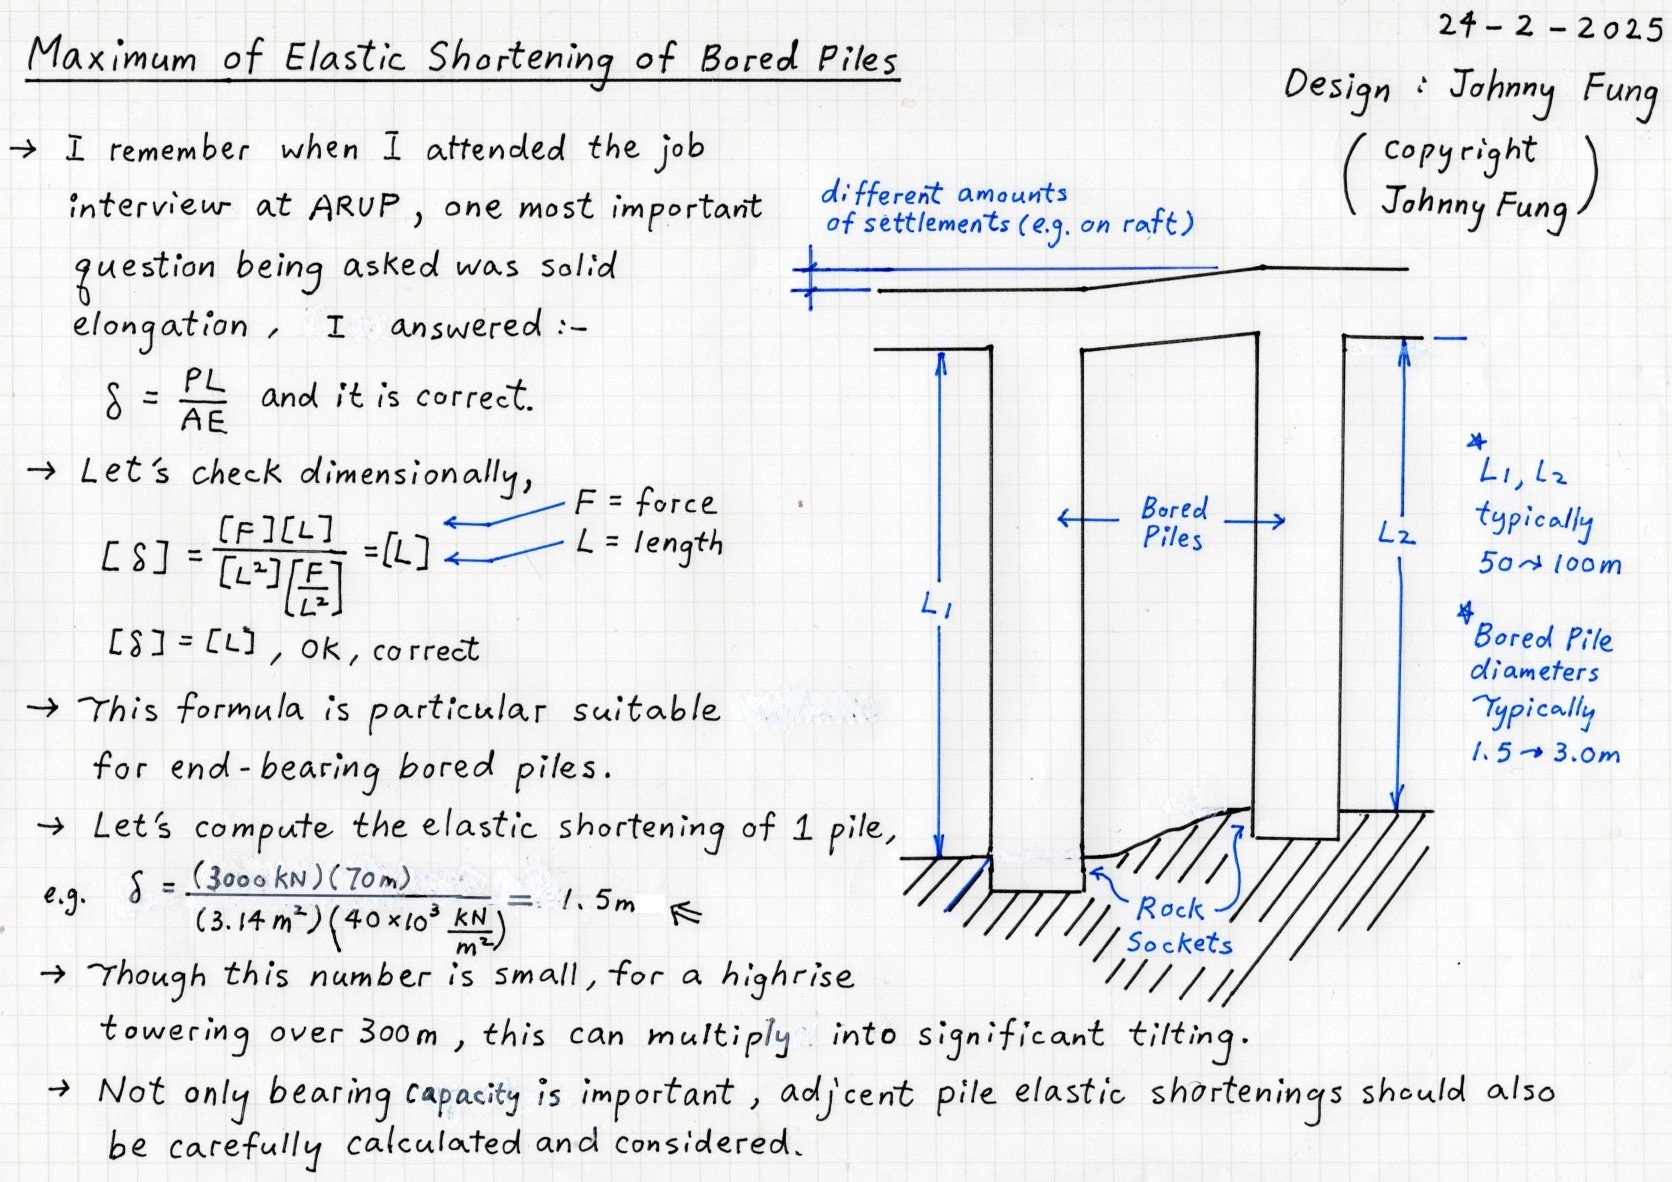 24-2-2025
Maximum of Elastic Shortening of Bored Piles
Design : Johnny Fung
(copyright
Johnny Fung)
→ I remember when I attended the job
interview at ARUP, one most important
question being asked was solid
elongation, I answered :-
δ = PL/AE and it is correct.
→ Let's check dimensionally,
[δ] = [F][L]/[L²][F/L²] = [L]
F = force
L = length
[δ] = [L], OK, correct
→ This formula is particular suitable
for end-bearing bored piles.
→ Let's compute the elastic shortening of 1 pile,
e.g. δ = (3000 kN)(70m)/(3.14 m²)(40×10³ kN/m²) = 1.5m
→ Though this number is small, for a highrise
towering over 300m, this can multiply into significant tilting.
→ Not only bearing capacity is important, adjcent pile elastic shortenings should also
be carefully calculated and considered.
different amounts
of settlements (e.g. on raft)
L1
Bored
Piles
L2
Rock
Sockets
* L1, L2
typically
50→100m
* Bored Pile
diameters
Typically
1.5→3.0m